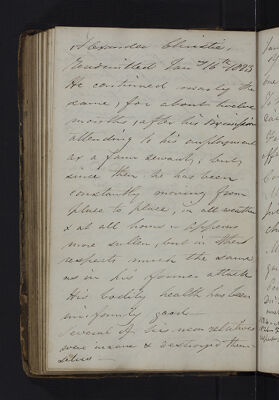 Alexander Christie,
Readmitted Jany 16th 1883
He continued nearly the
same, for about twelve
months, after his dismission
attending to his employment
as a farm servant, but,
since then he has been
constantly moving from
place to place, in all weather
& at all hours - appears
more sullen, but in other
respects much the same
as in his former attack
His bodily health has been
uniformly good -
Several of his near relatives
were insane & destroyed them-
selves -